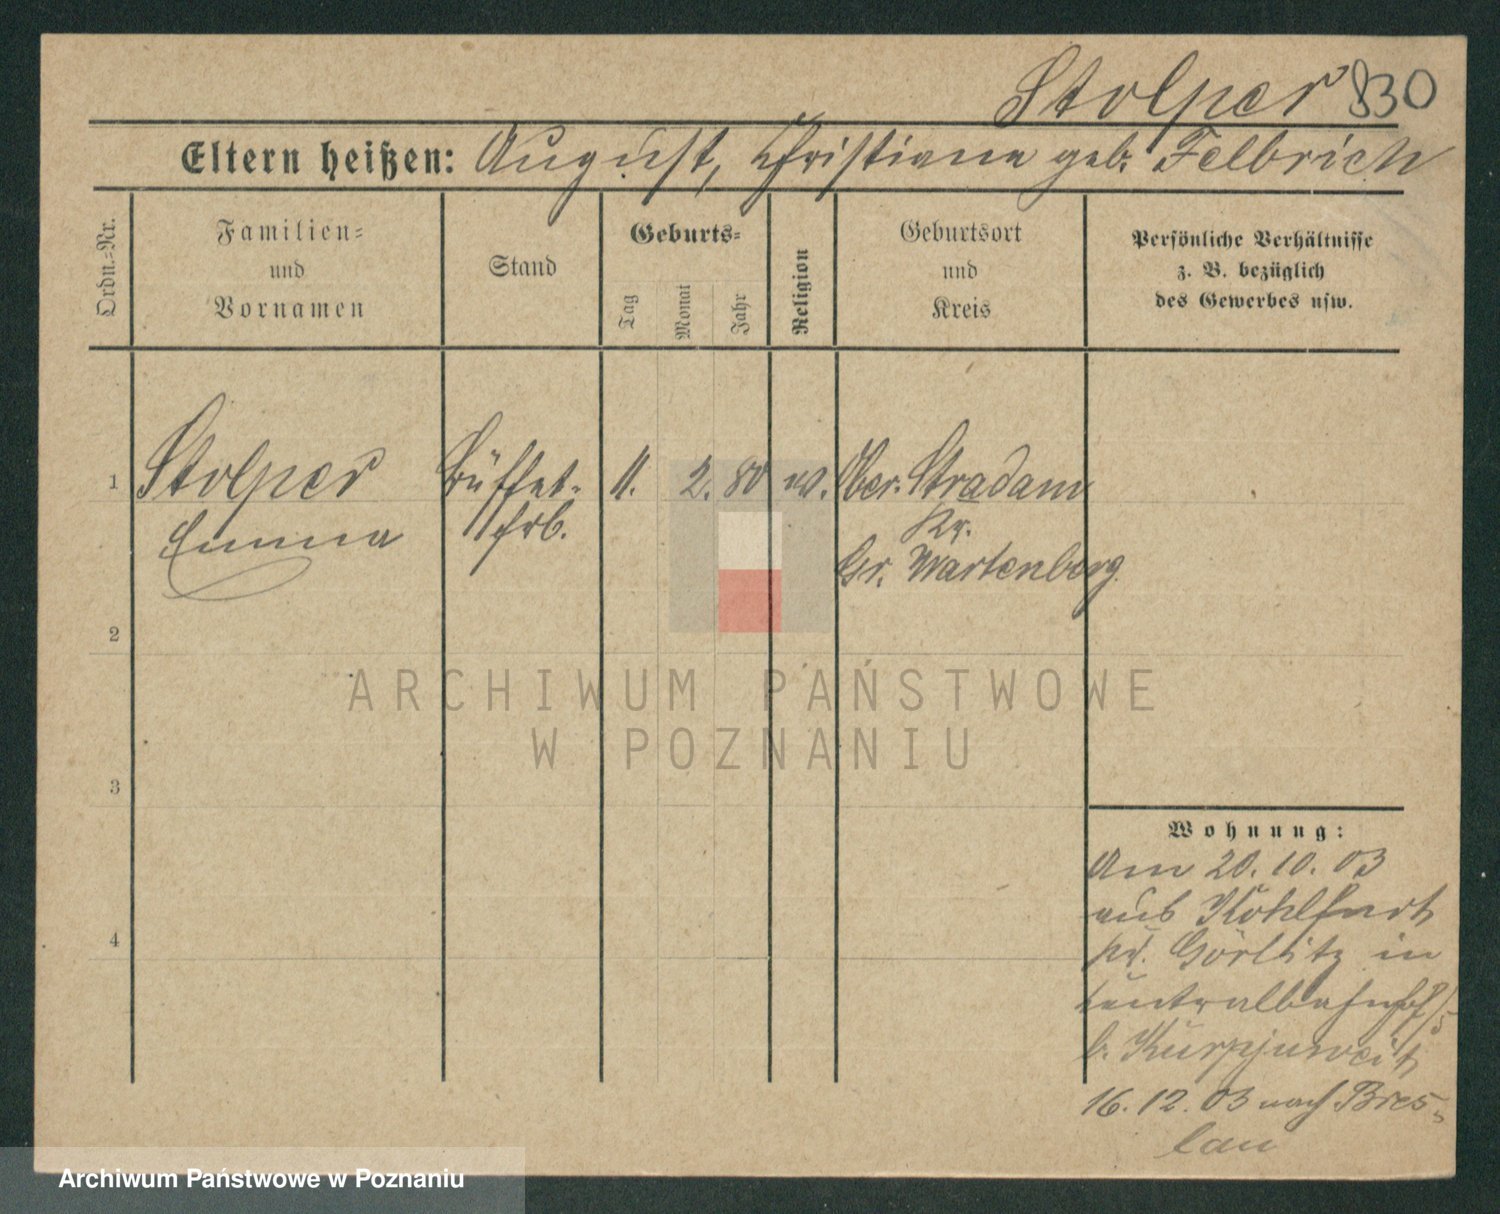 Stolper 830
Eltern heißen: August, Christiane geb. Felbrich
Ordn.=Nr.
Familien=
und
Vornamen
Stand
Geburts=
Tag
Monat
Jahr
Religion
Geburtsort
und
Kreis
Persönliche Verhältnisse
z. B. bezüglich
des Gewerbes usw.
1
Stolper
Emma
Büffet-
frl.
11. 2. 80
ev.
Ober. Stradam
Kr.
Gr. Wartenberg.
2
3
4
ARCHIWUM PAŃSTWOWE
W POZNANIU
Wohnung:
Am 20.10.03
aus Kohlfurt
Kr. Görlitz in
Centralbahnhof
b. Kurpjuweit
16.12.03 nach Bres-
lau
Archiwum Państwowe w Poznaniu